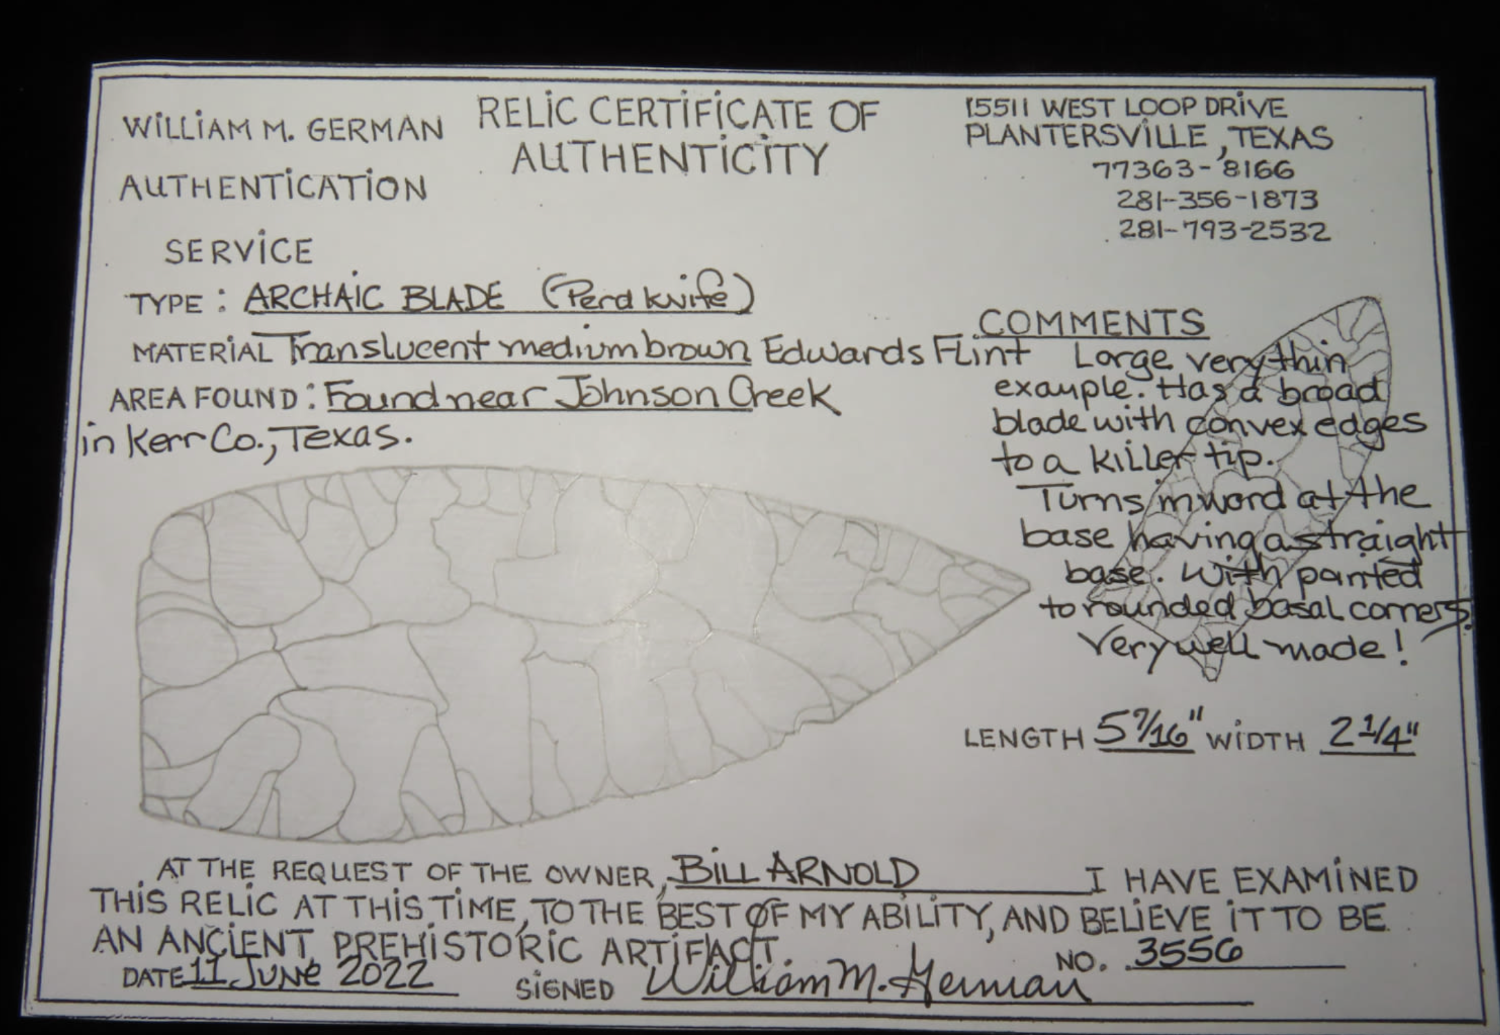 WILLIAM M. GERMAN
AUTHENTICATION
SERVICE
RELIC CERTIFICATE OF
AUTHENTICITY
15511 WEST LOOP DRIVE
PLANTERSVILLE, TEXAS
77363-8166
281-356-1873
281-793-2532
TYPE: ARCHAIC BLADE (Perd knife)
MATERIAL Translucent medium brown Edwards Flint
AREA FOUND: Found near Johnson Creek
in Kerr Co., Texas.
COMMENTS
Large very thin
example. Has a broad
blade with convex edges
to a killer tip.
Turns inword at the
base having a straight
base. With pointed
to rounded basal corners.
Very well made!
LENGTH 5 7/16" WIDTH 2 1/4"
AT THE REQUEST OF THE OWNER, BILL ARNOLD I HAVE EXAMINED
THIS RELIC AT THIS TIME, TO THE BEST OF MY ABILITY, AND BELIEVE IT TO BE
AN ANCIENT, PREHISTORIC ARTIFACT.
DATE 11 JUNE 2022 SIGNED William M. German NO. 3556